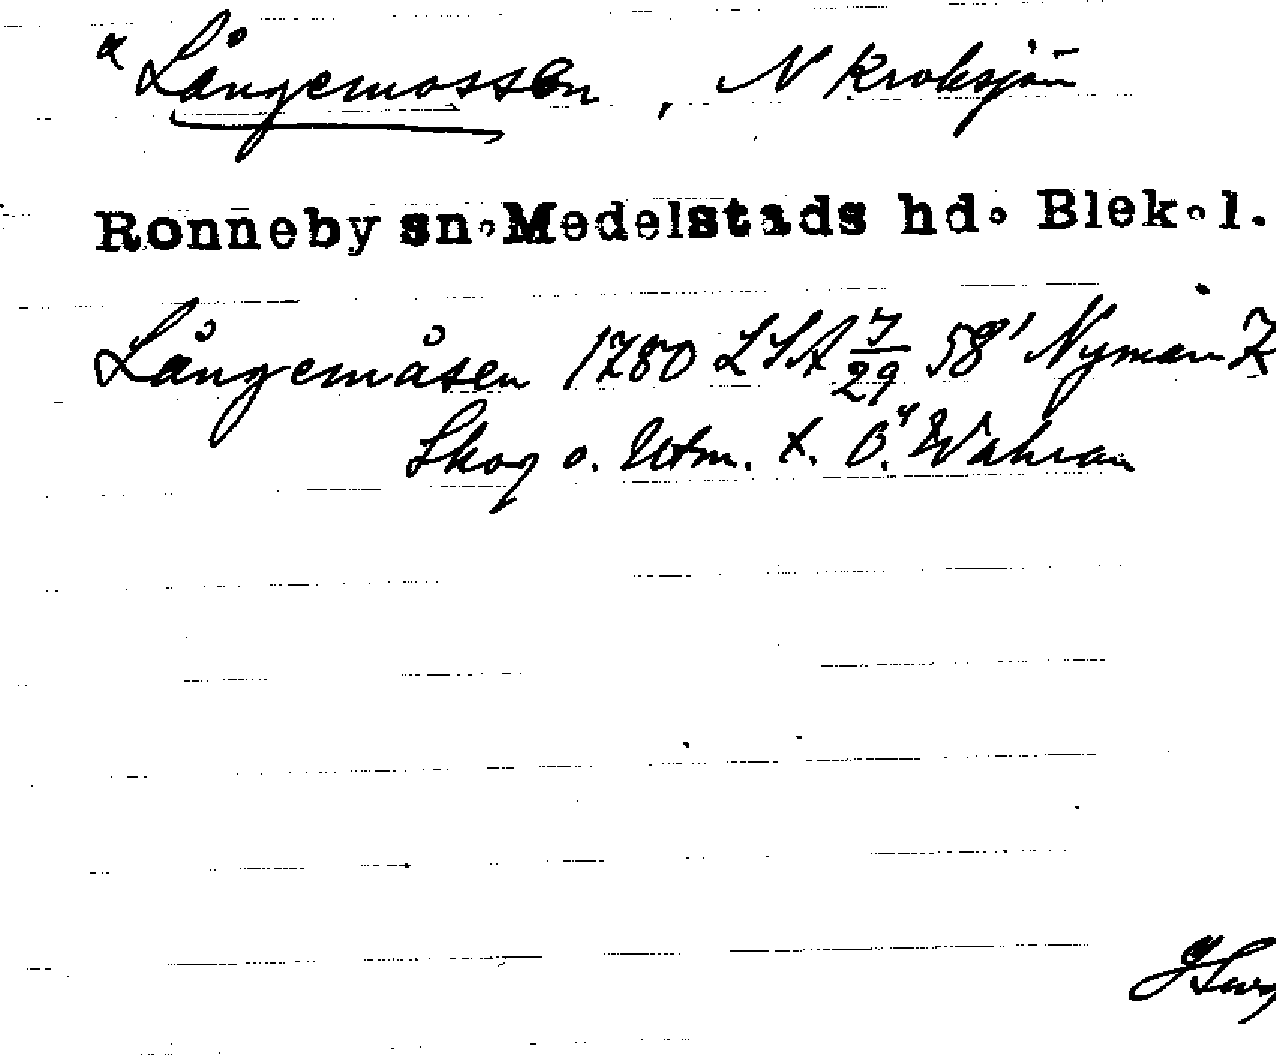 x Långemossen, N Kroksjön
Ronneby sn. Medelstads hd. Blek. l.
Långemåsen 1780 LSA 7/29 58' Nyman K
Skog o. Utm. t. Ö. Wahran